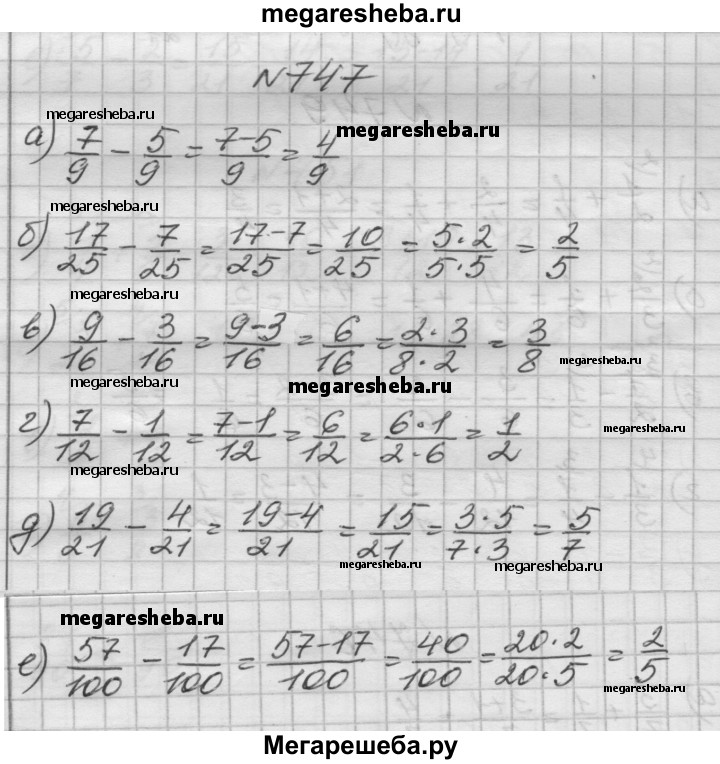 megaresheba.ru
№747
megaresheba.ru
а) 7/9 − 5/9 = 7−5/9 = 4/9
megaresheba.ru
megaresheba.ru
б) 17/25 − 7/25 = 17−7/25 = 10/25 = 5·2/5·5 = 2/5
megaresheba.ru
в) 9/16 − 3/16 = 9−3/16 = 6/16 = 2·3/8·2 = 3/8
megaresheba.ru
megaresheba.ru
megaresheba.ru
г) 7/12 − 1/12 = 7−1/12 = 6/12 = 6·1/2·6 = 1/2
megaresheba.ru
megaresheba.ru
д) 19/21 − 4/21 = 19−4/21 = 15/21 = 3·5/7·3 = 5/7
megaresheba.ru
megaresheba.ru
megaresheba.ru
е) 57/100 − 17/100 = 57−17/100 = 40/100 = 20·2/20·5 = 2/5
megaresheba.ru
Мегарешеба.ру